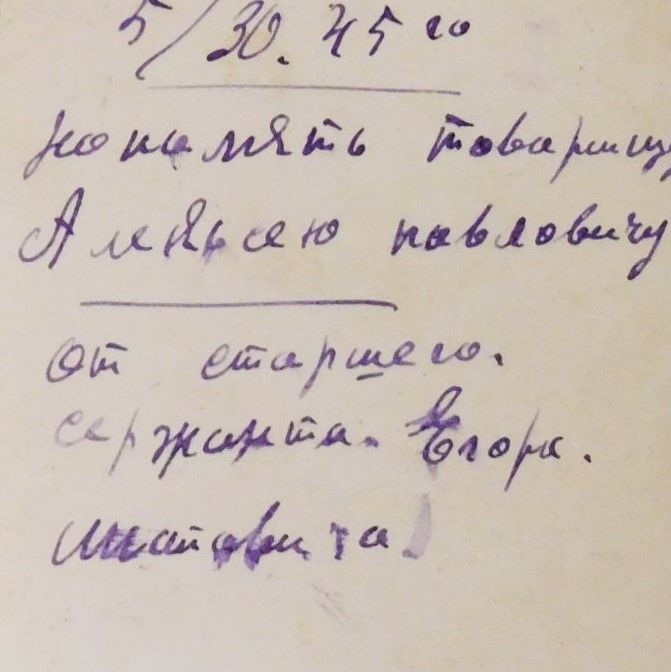 5/30. 45 го
на память товарищу
Алексею павловичу
от старшего.
сержанта. Егора.